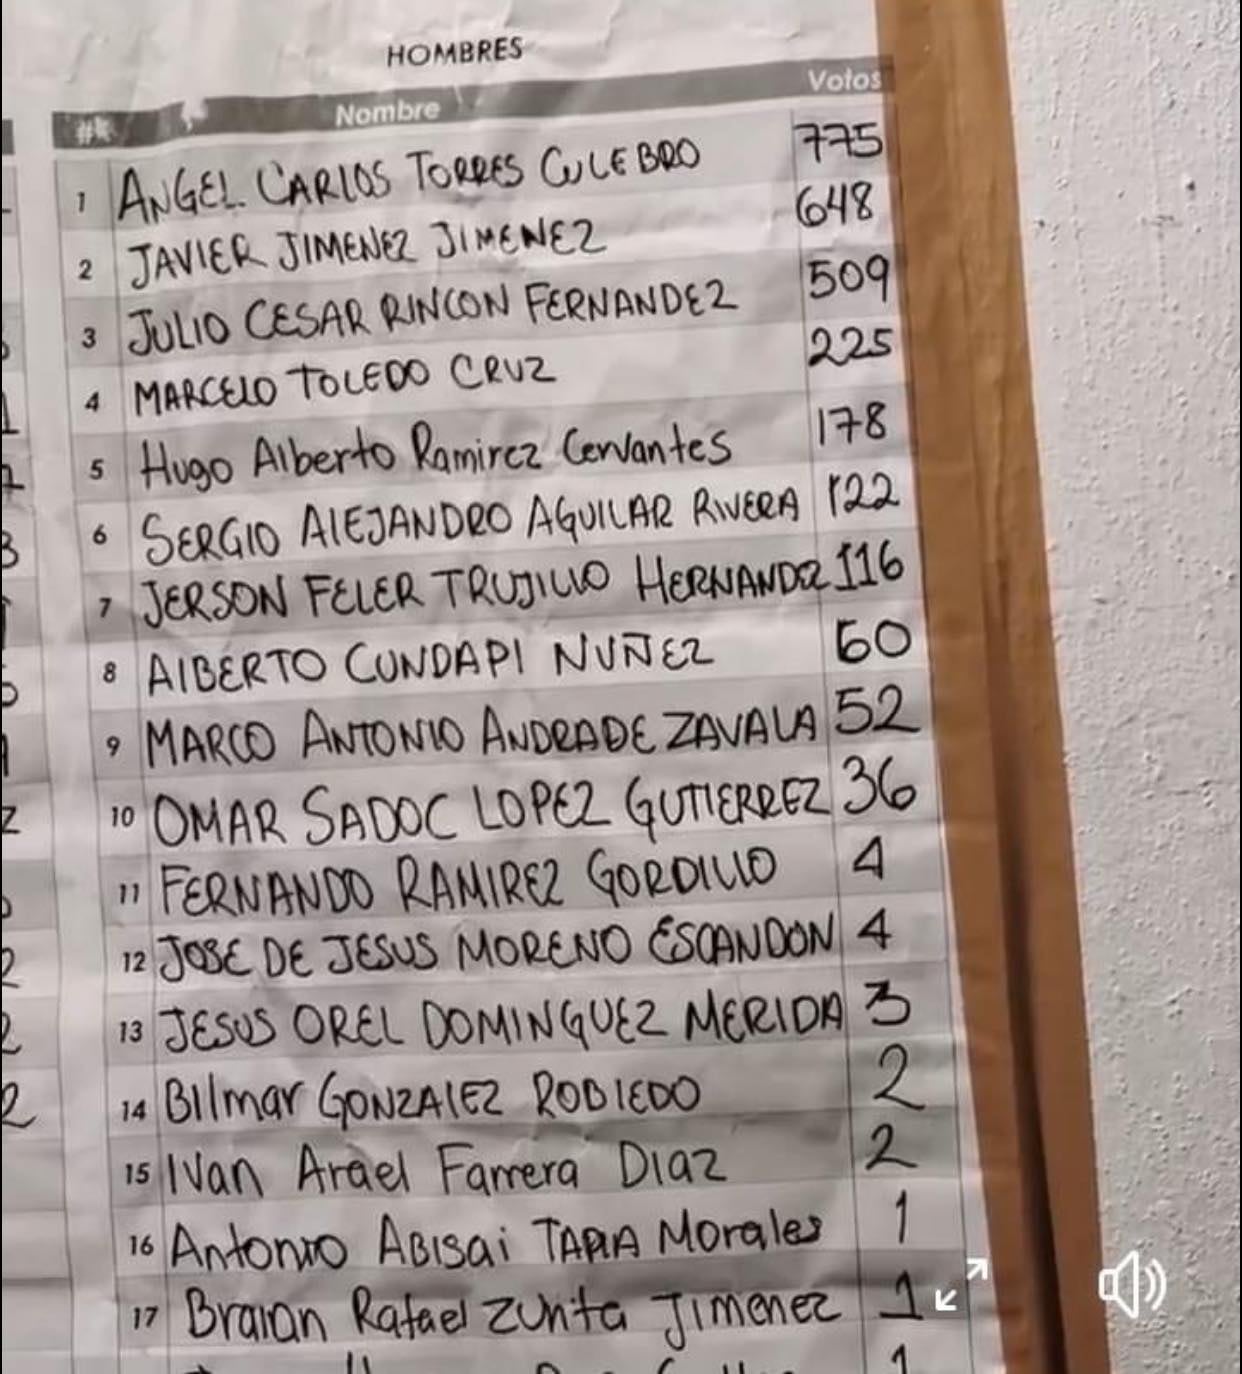 HOMBRES
# Nombre Votos
1 ANGEL CARLOS TORRES CULEBRO 775
2 JAVIER JIMENEZ JIMENEZ 648
3 JULIO CESAR RINCON FERNANDEZ 509
4 MARCELO TOLEDO CRUZ 225
5 Hugo Alberto Ramirez Cervantes 178
6 SERGIO AlEJANDRO AGUILAR RIVERA 122
7 JERSON FELER TRUJILLO HERNANDEZ 116
8 AlBERTO CUNDAPI NUÑEZ 60
9 MARCO ANTONIO ANDRADE ZAVALA 52
10 OMAR SADOC LOPEZ GUTIERREZ 36
11 FERNANDO RAMIREZ GORDILLO 4
12 JOSE DE JESUS MORENO ESCANDON 4
13 JESUS OREL DOMINGUEZ MERIDA 3
14 BIlmar GONZAlEZ ROBlEDO 2
15 IVan Arael Farrera DIaz 2
16 Antonio ABISai TAPIA Morales 1
17 Braian Rafael Zunita Jimenez 1
1